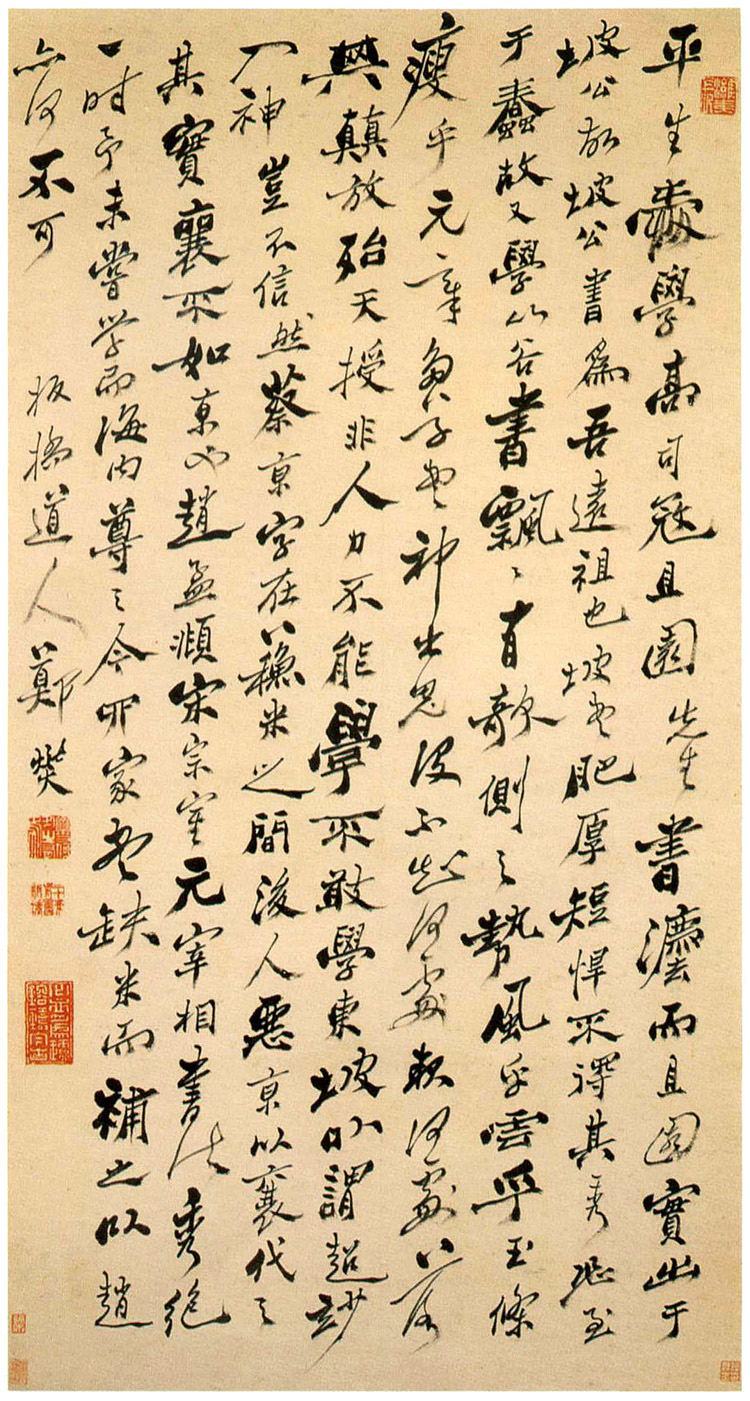 平生愛學高司寇且園先生書灋而且園實出于
坡公故坡公書爲吾遠祖也坡書肥厚短悍不得其秀恐至
于蠢故又學山谷書飄〻有欹側之勢風乎雲乎玉條
瘦乎元章書神出鬼没不知何處起何處落
顛放殆天授非人力不能學不敢學東坡以謂超妙
入神豈不信然蔡京字在蘇米之間後人惡京以襄代之
其實襄不如京也趙孟頫宋宗室元宰相書法秀絶
一時予未嘗學而海内尊之今四家書缺米而補之以趙
亦何不可
板橋道人鄭燮